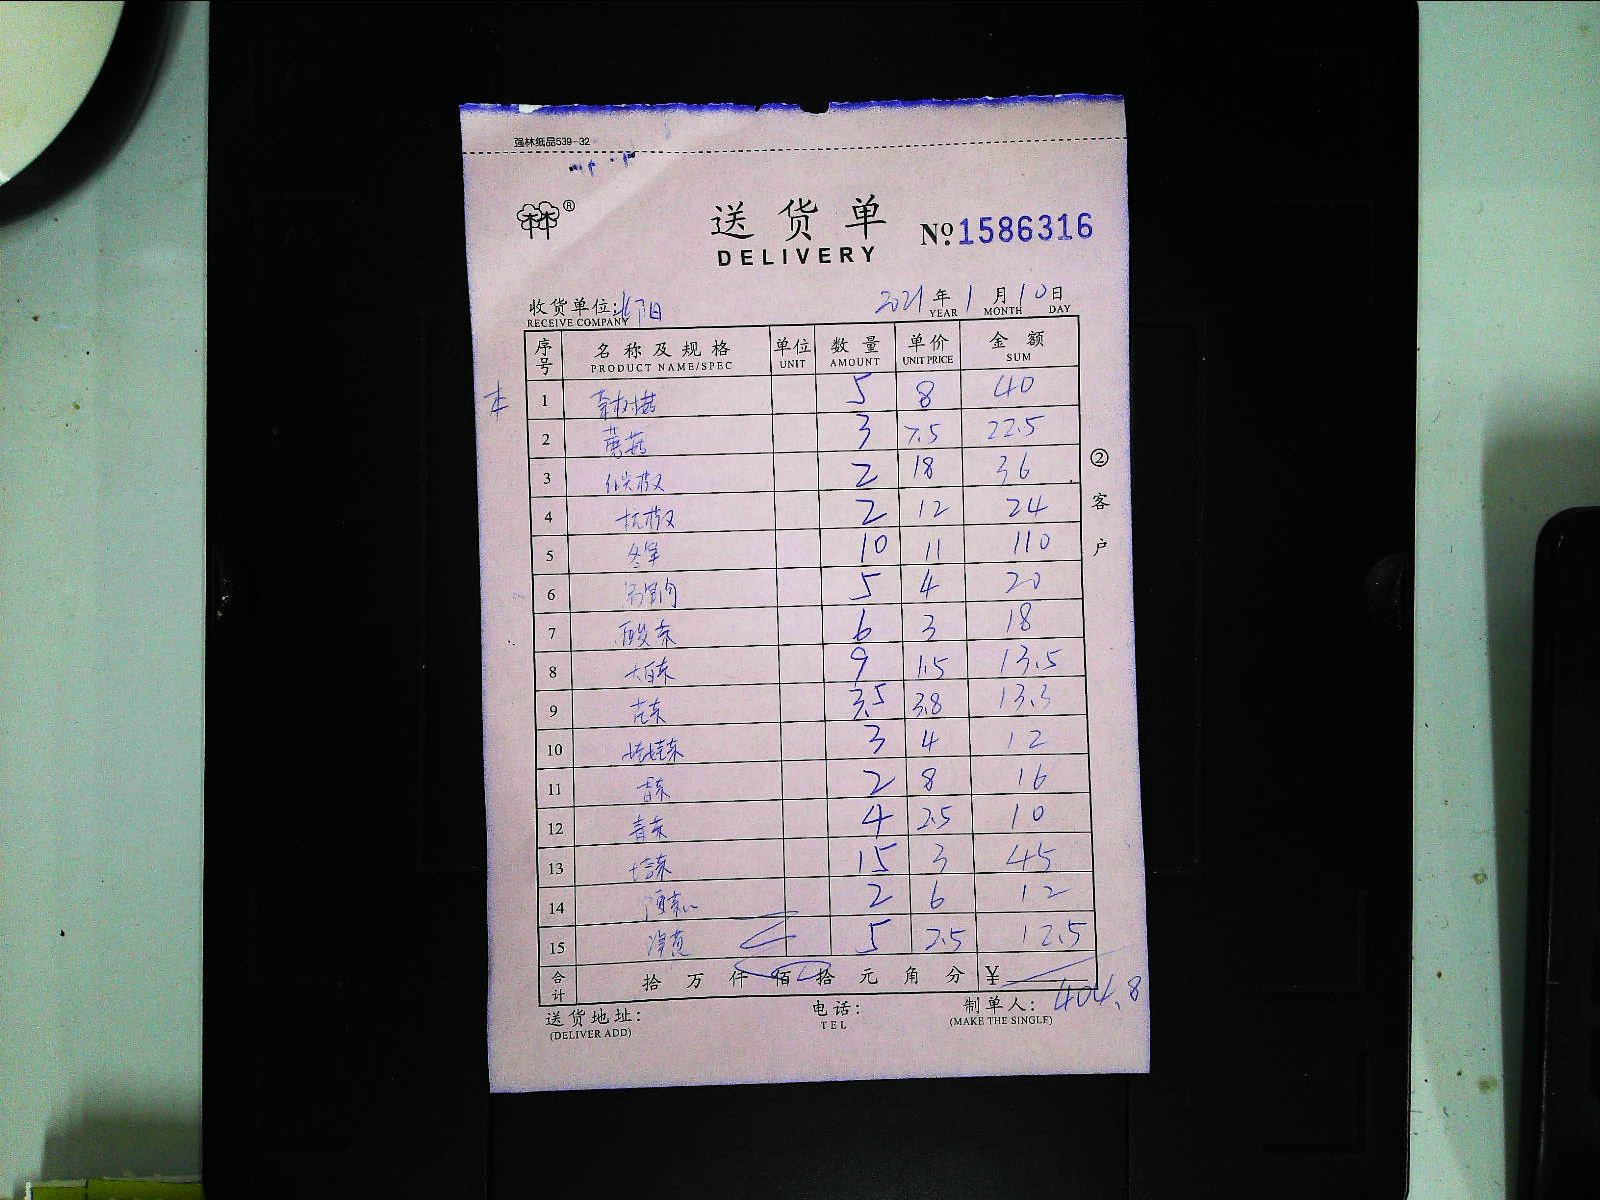 强林纸品539-32
®
送货单
№ 1586316
DELIVERY
收货单位:
2021年1月10日
RECEIVE COMPANY YEAR MONTH DAY
序号 名称及规格 单位 数量 单价 金额
PRODUCT NAME/SPEC UNIT AMOUNT UNIT PRICE SUM
1 5 8 40
2 蘑菇 3 7.5 22.5
3 2 18 36
4 杭椒 2 12 24
5 冬笋 10 11 110
6 5 4 20
7 酸菜 6 3 18
8 大白菜 9 1.5 13.5
9 3.5 3.8 13.3
10 娃娃菜 3 4 12
11 2 8 16
12 青菜 4 2.5 10
13 15 3 45
14 2 6 12
15 5 2.5 12.5
合计 拾万仟佰拾元角分 ¥ 404.8
②客户
送货地址: 电话: 制单人:
(DELIVER ADD) TEL (MAKE THE SINGLE)